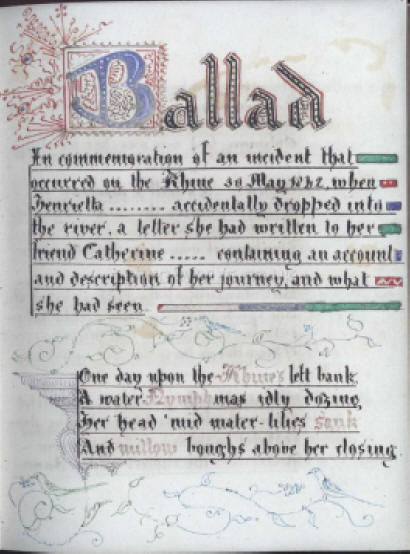 Ballad
In commemoration of an incident that
occurred on the Rhine 30 May 1842, when
Henrietta ........ accidentally dropped into
the river, a letter she had written to her
friend Catherine ..... containing an account
and description of her journey, and what
she had seen.
One day upon the Rhine's left bank
A water Nymph was idly dozing
Her head 'mid water-lilies sank
And willow boughs above her closing